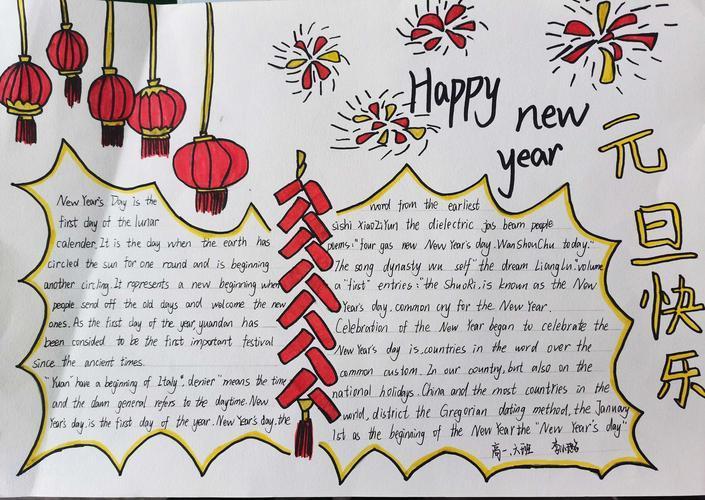 Happy new
year
元旦快乐
New Year's Day is the
first day of the lunar
calender. It is the day when the earth has
circled the sun for one round and is beginning
another circling. It represents a new beginning when
people send off the old days and welcome the new
ones. As the first day of the year, yuandan has
been consided to be the first important festival
since the ancient times.
"Yuan" have a beginning of Italy". denier "means the time
and the dawn general refers to the daytime. New
Year's day. is the first day of the year. New Year's day. the
word from the earliest
sishi XiaoZiYun the dielectric jas beam people
plems: "four gas new New Year's day. WanShouChu today."
The song dynasty wu self "the dream LiangLu." volume
a "first" entries: "the ShuoRi. is known as the New
Year's day. common cry for the New Year.
Celebration of the New Year began to celebrate the
New Year's day is. countries in the word over the
common custom. In our country, but also on the
national holidays. China and the most countries in the
world, district the Gregorian dating method, the January
1st as the beginning of the New Year the "New Year's day"
高一.六班